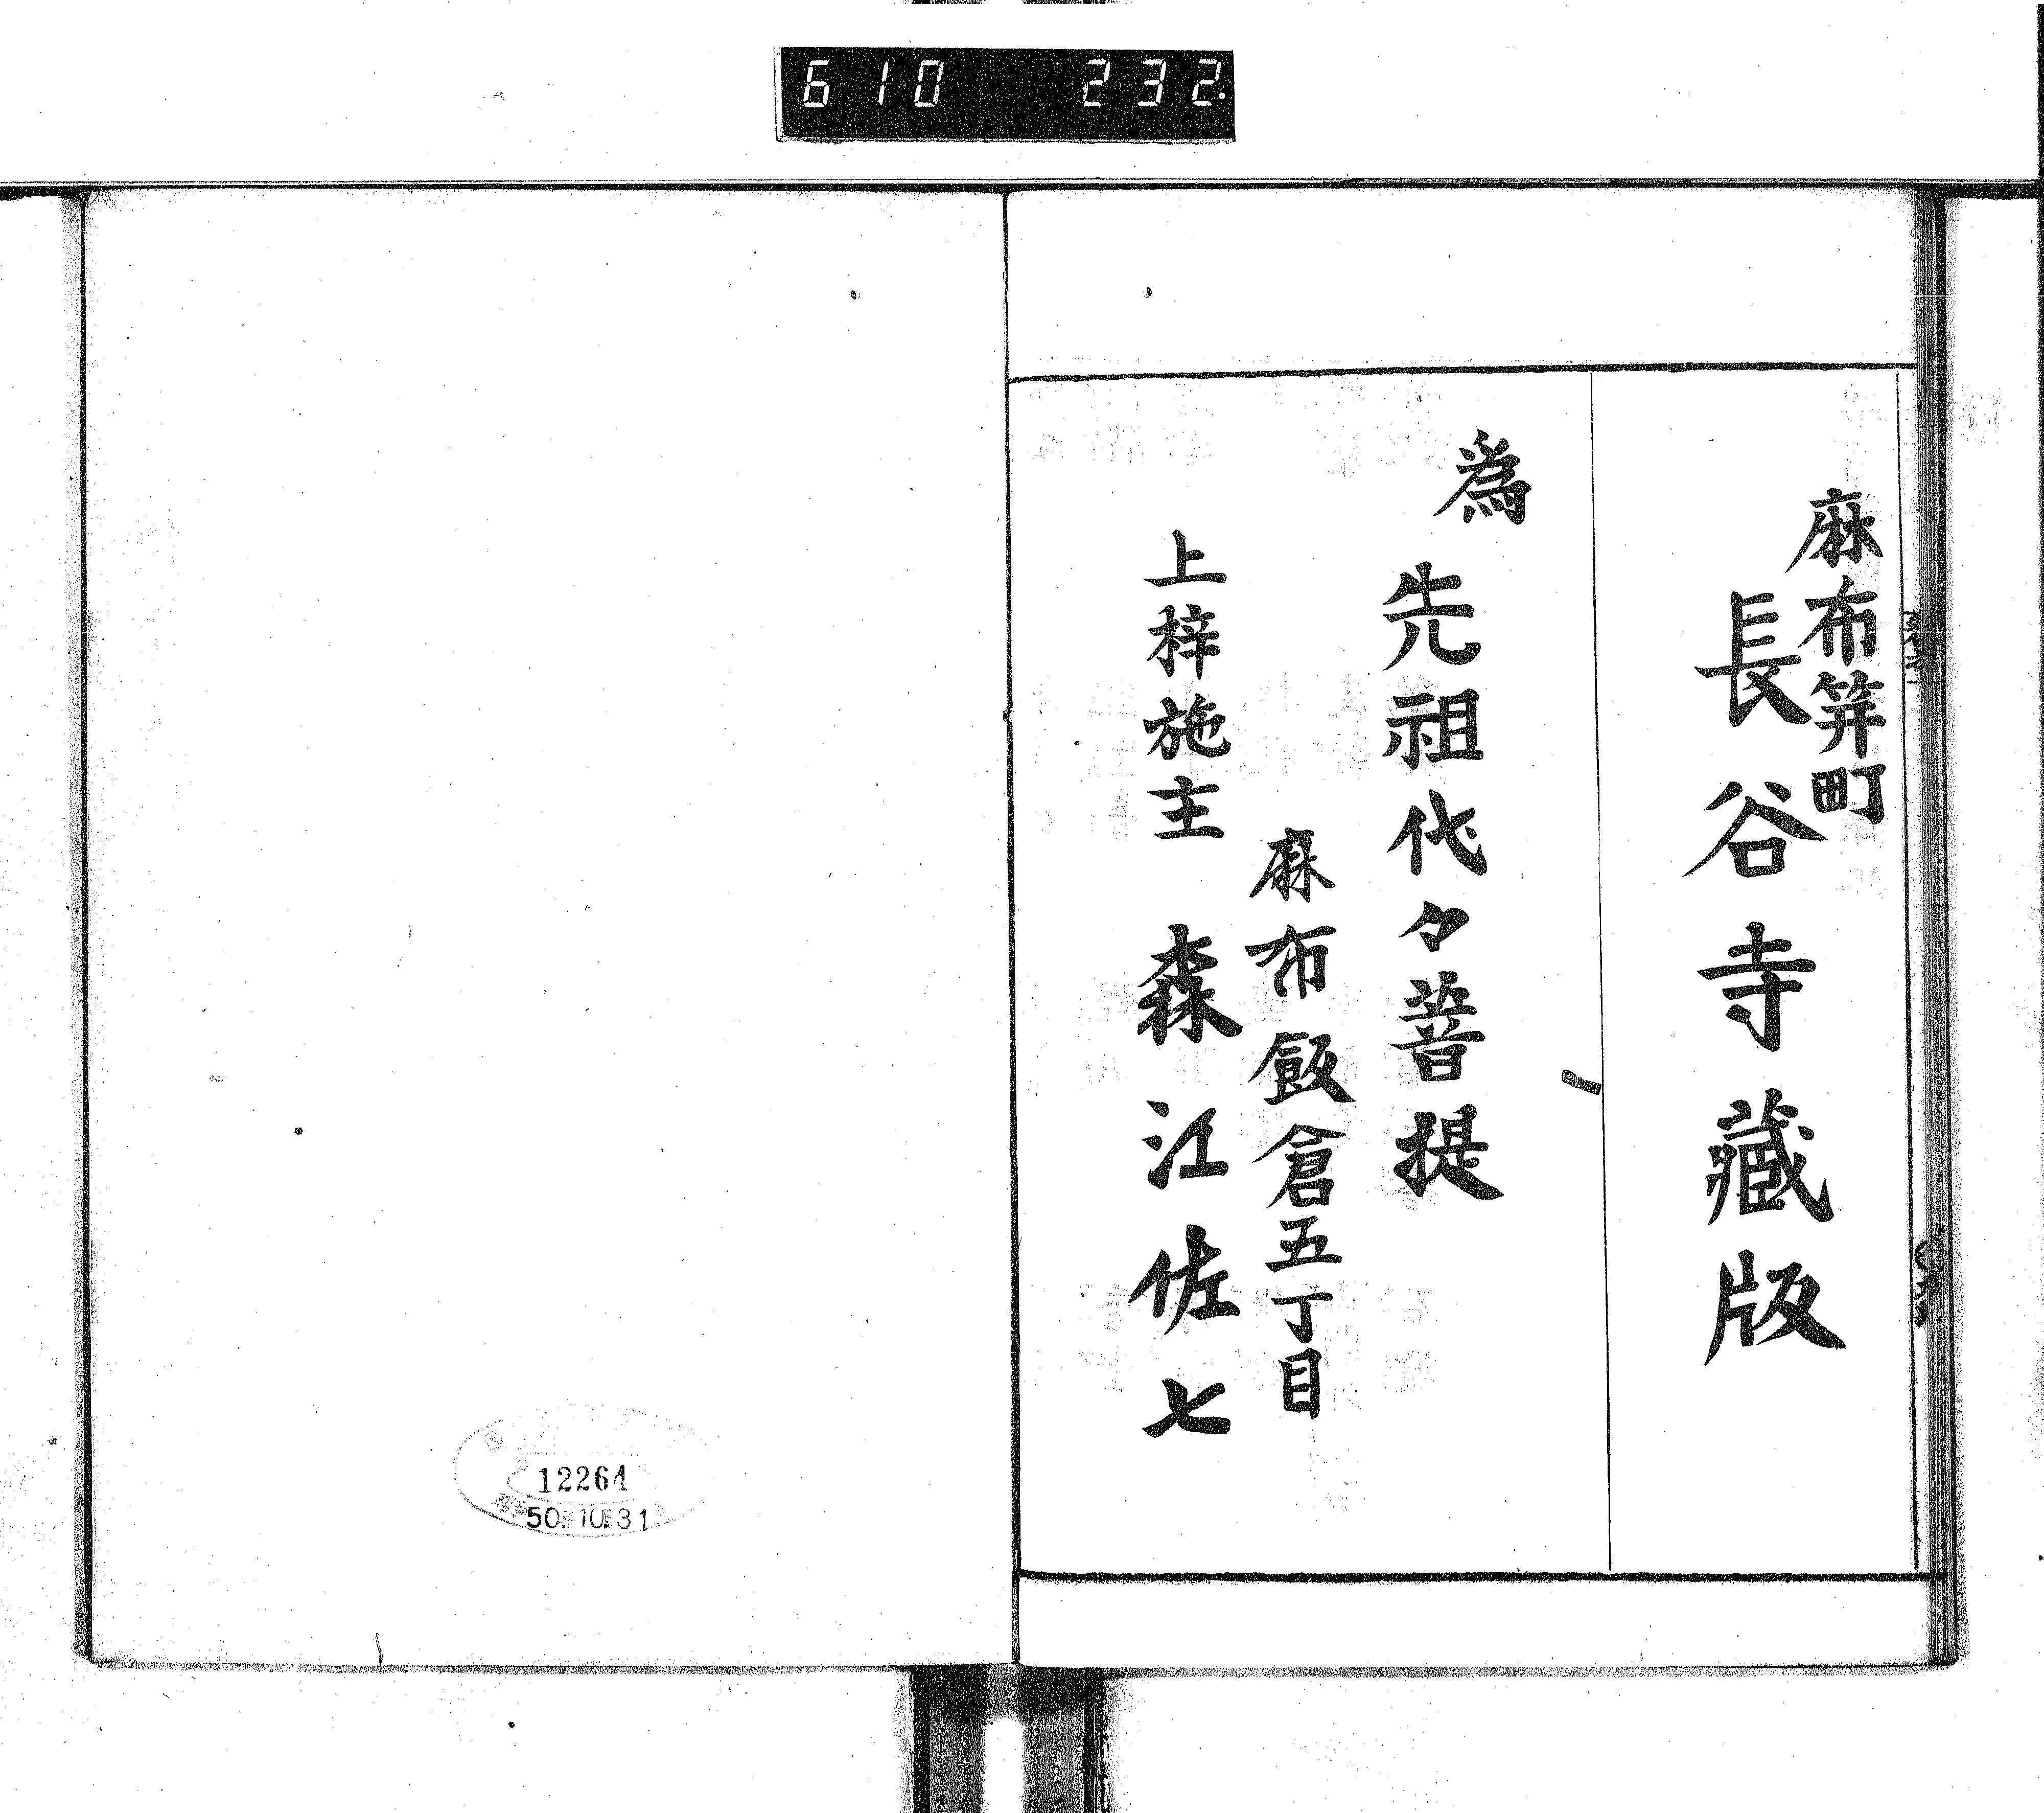 610 232.
麻布笄町
長谷寺藏版
為
先祖代々菩提
麻布飯倉五丁目
上梓施主 森江佐七
12264
50.10.31